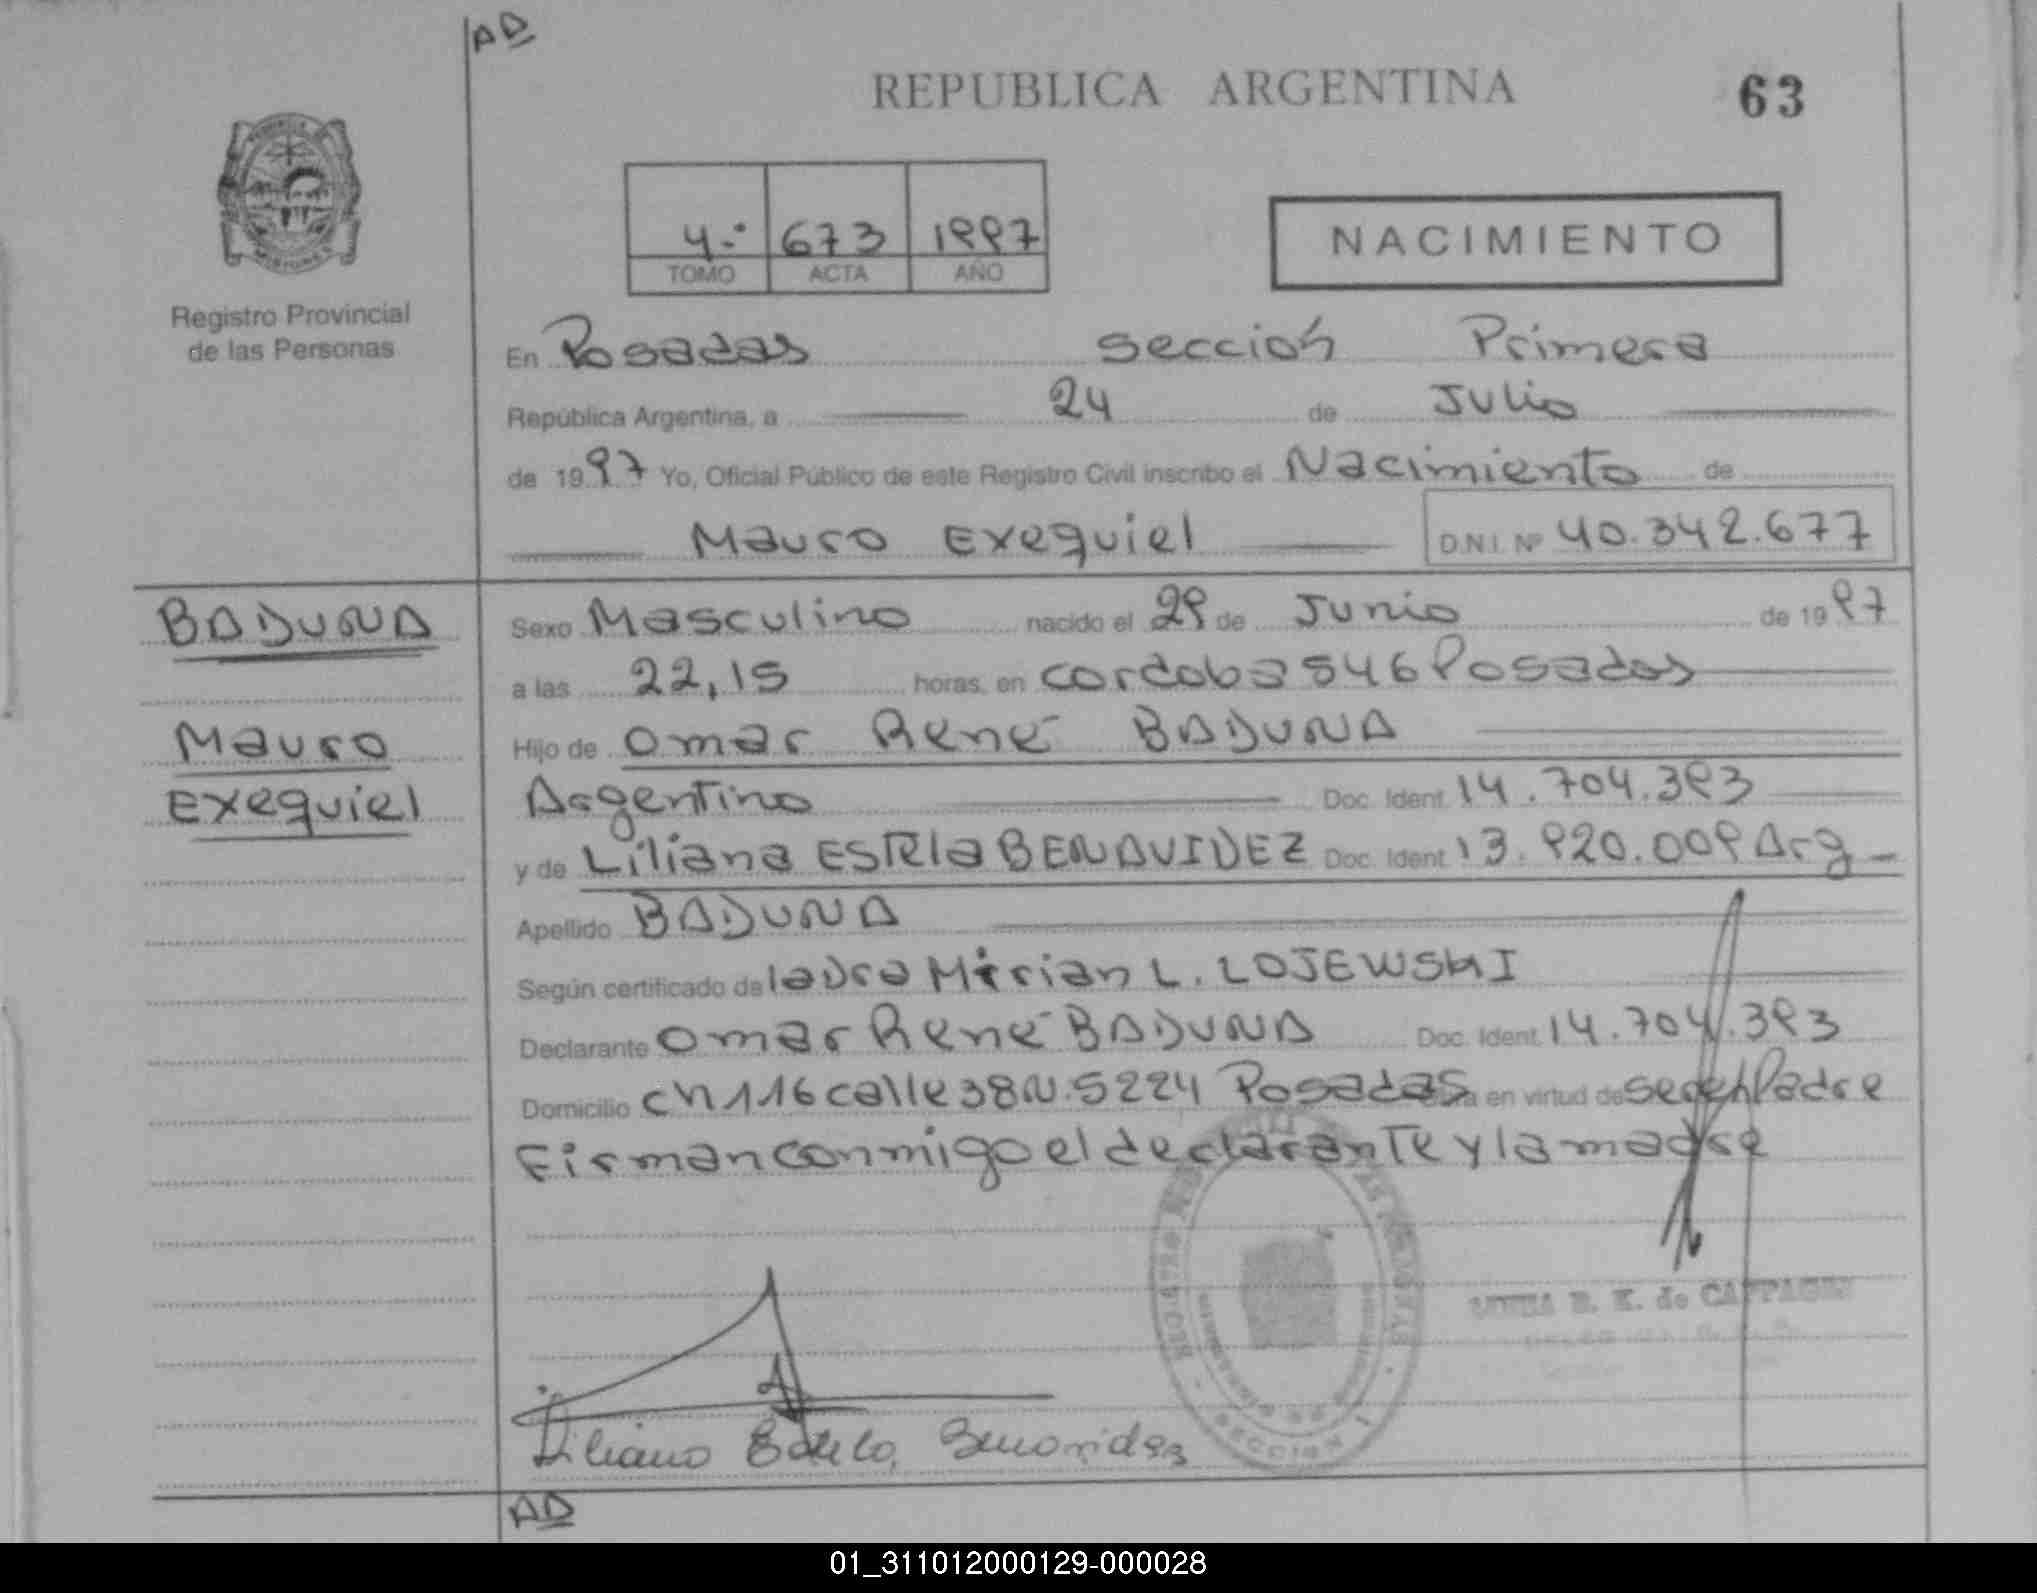 AD
REPUBLICA ARGENTINA
63
PROVINCIA DE
MISIONES
Registro Provincial
de las Personas
4.º 673 1997
TOMO ACTA AÑO
NACIMIENTO
En Posadas sección Primera
República Argentina, a 24 de Julio
de 1997 Yo, Oficial Público de este Registro Civil inscribo el Nacimiento de
Mauro Exequiel D.N.I. Nº 40.342.677
BADUNA
Mauro
Exequiel
Sexo Masculino nacido el 29 de Junio de 1997
a las 22,15 horas, en cordoba 546 Posadas
Hijo de Omar René BADUNA
Argentino Doc. Ident. 14.704.393
y de Liliana ESTRla BENAVIDEZ Doc. Ident. 13.920.009 Arg
Apellido BADUNA
Según certificado de la Dra Mirian L. LOJEWSKI
Declarante Omar René BADUNA Doc. Ident. 14.704.393
Domicilio ch 116 calle 38 N. 5224 Posadas en virtud de ser el Padre
Firman conmigo el declarante y la madre
SECCION 1
E. K. de
Liliana Estela Benavidez
AD
01_311012000129-000028